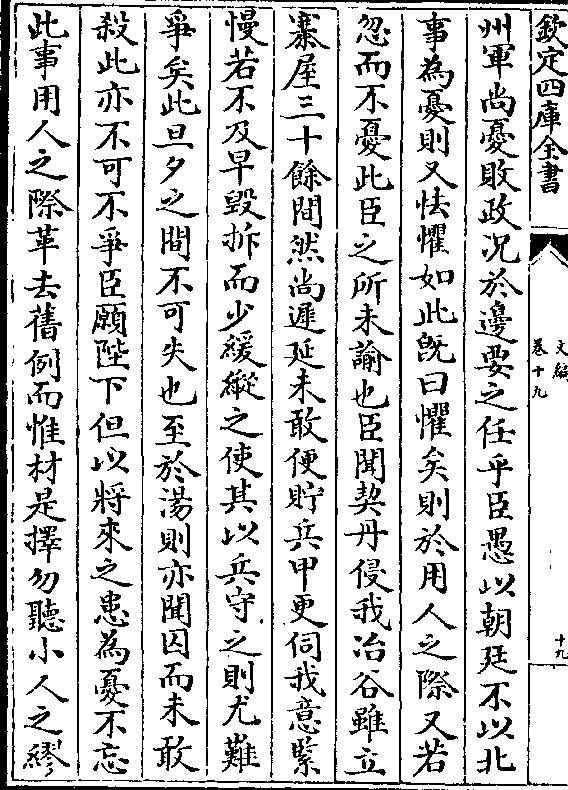 欽定四庫全書
文編
卷十九
十九
州軍尚憂敗政况於邊要之任乎臣愚以朝廷不以北
事為憂則又怯懼如此既曰懼矣則於用人之際又若
忽而不憂此臣之所未諭也臣聞契丹侵我冶谷雖立
寨屋三十餘間然尚遲延未敢便貯兵甲更伺我意緊
慢若不及早毀拆而少緩縱之使其以兵守之則尤難
爭矣此旦夕之間不可失也至於湯則亦聞囚而未敢
殺此亦不可不爭臣願陛下但以將來之患為憂不忘
此事用人之際革去舊例而惟材是擇勿聽小人之繆